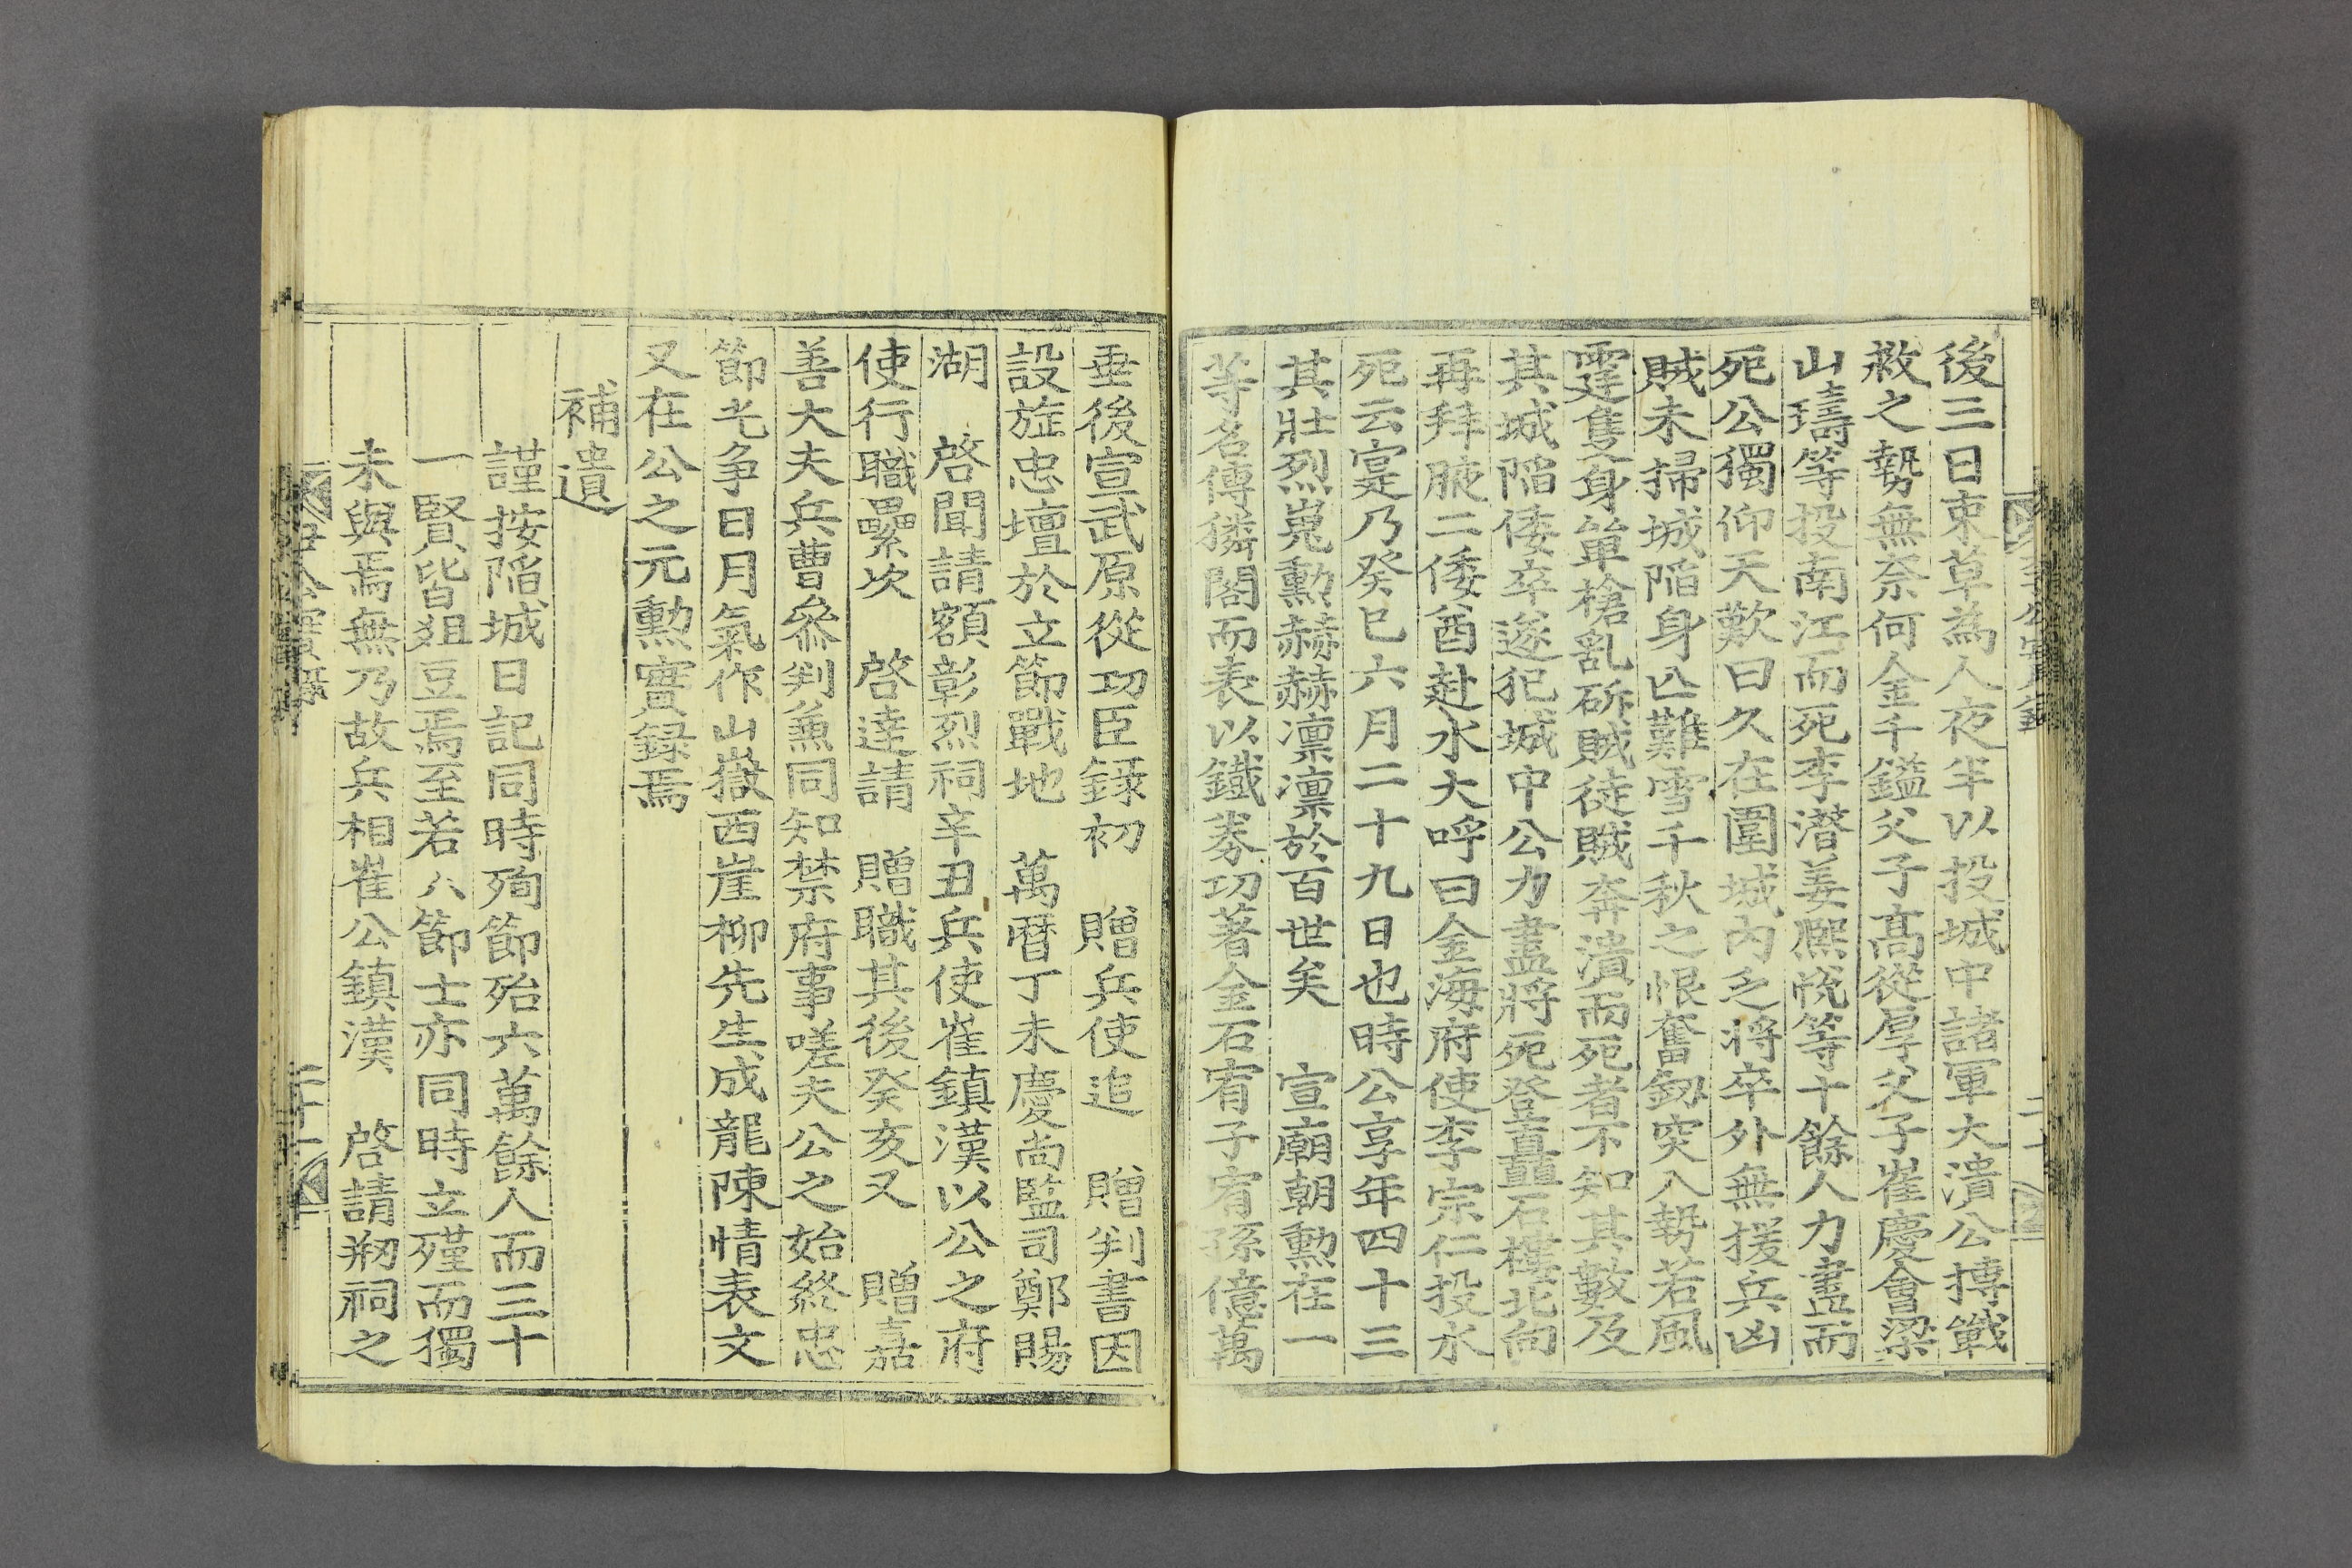 後三日束草為人夜半以投城中諸軍大潰公搏戰
救之勢無奈何金千鎰父子高從厚父子崔慶會梁
山璹等投南江而死李潛姜熙悅等十餘人力盡而
死公獨仰天歎曰久在圍城內乏將卒外無援兵凶
賊未掃城陷身亡難雪千秋之恨奮釰突入勢若風
霆隻身單槍亂斫賊徒賊奔潰而死者不知其數及
其城陷倭卒遂犯城中公力盡將死登矗石樓北向
再拜腋二倭酋赴水大呼曰金海府使李宗仁投水
死云寔乃癸巳六月二十九日也時公享年四十三
其壯烈嵬勳赫赫凛凛於百世矣 宣廟朝勳在一
等名傳獜閣而表以鐵券功著金石宥子宥孫億萬
垂後宣武原從功臣録初 贈兵使追 贈判書因
設旌忠壇於立節戰地 萬曆丁未慶尚監司鄭賜
湖 啓聞請額彰烈祠辛丑兵使崔鎮漢以公之府
使行職纍次 啓達請 贈職其後癸亥又 贈嘉
善大夫兵曹參判兼同知禁府事嗟夫公之始終忠
節光争日月氣作山嶽西崖柳先生成龍陳情表文
又在公之元勳實録焉
補遺
謹按陷城日記同時殉節殆六萬餘人而三十
一賢皆俎豆焉至若八節士亦同時立殣而獨
未與焉無乃故兵相崔公鎮漢 啓請刱祠之